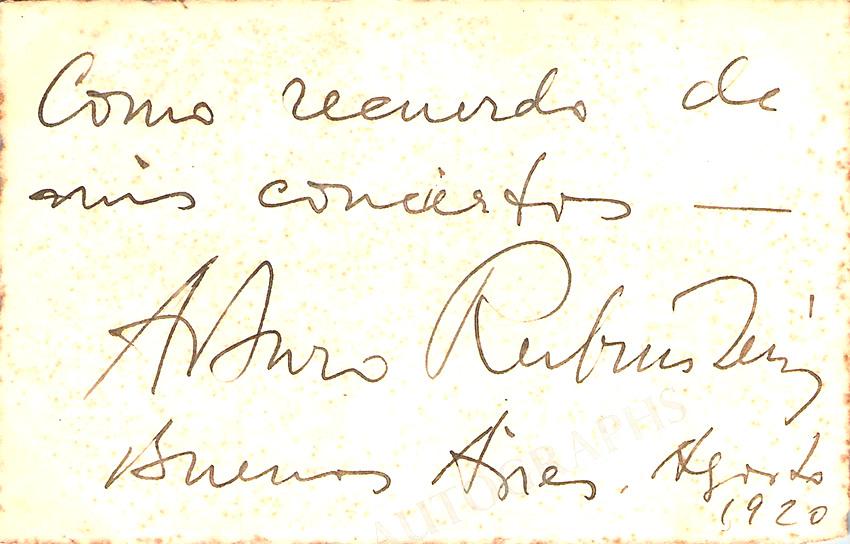 Como recuerdo de
mis conciertos —
Arturo Rubinstein
Buenos Aires, Agosto
1920
AUTOGRAPHS